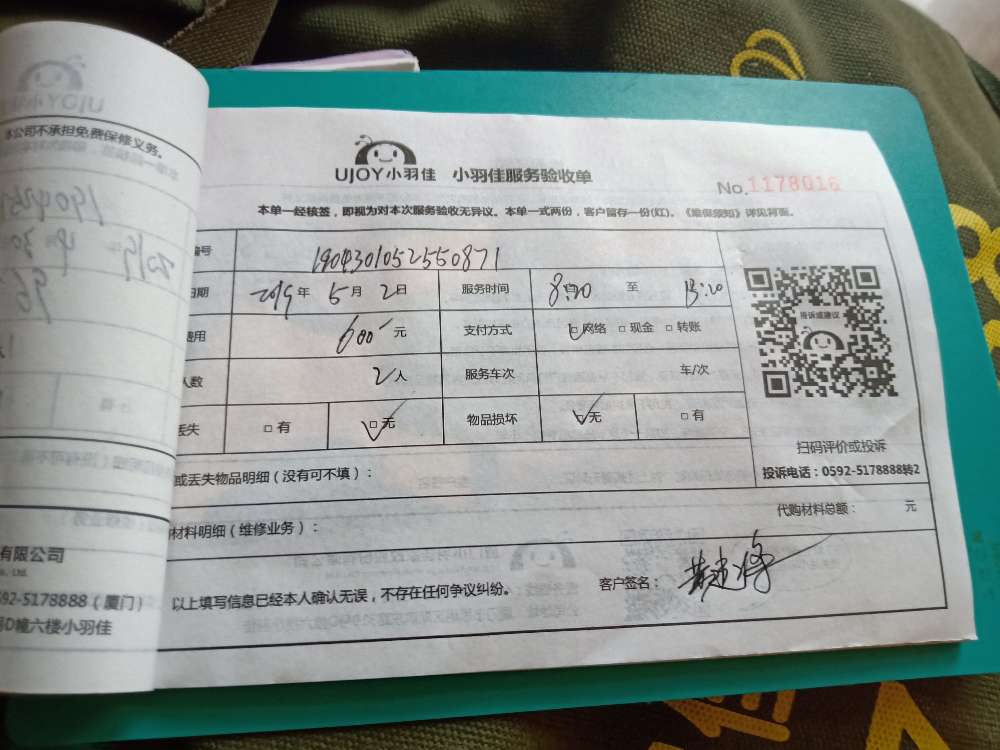 本公司不承担免费保修义务。
UJOY小羽佳 小羽佳服务验收单
No.1178016
本单一经核签，即视为对本次服务验收无异议。本单一式两份，客户留存一份(红)。《维保须知》详见背面。
编号 1904301052550871
日期 2019年 5月 2日 服务时间 至 13:20
费用 600 元 支付方式 网络 □ 现金 □ 转账
人数 2人 服务车次 车/次
丢失 □ 有 □ 无 物品损坏 □ 无 □ 有
投诉或建议
扫码评价或投诉
投诉电话：0592-5178888转2
或丢失物品明细（没有可不填）：
材料明细（维修业务）：
代购材料总额： 元
以上填写信息已经本人确认无误，不存在任何争议纠纷。 客户签名：
有限公司
592-5178888（厦门）
D幢六楼小羽佳